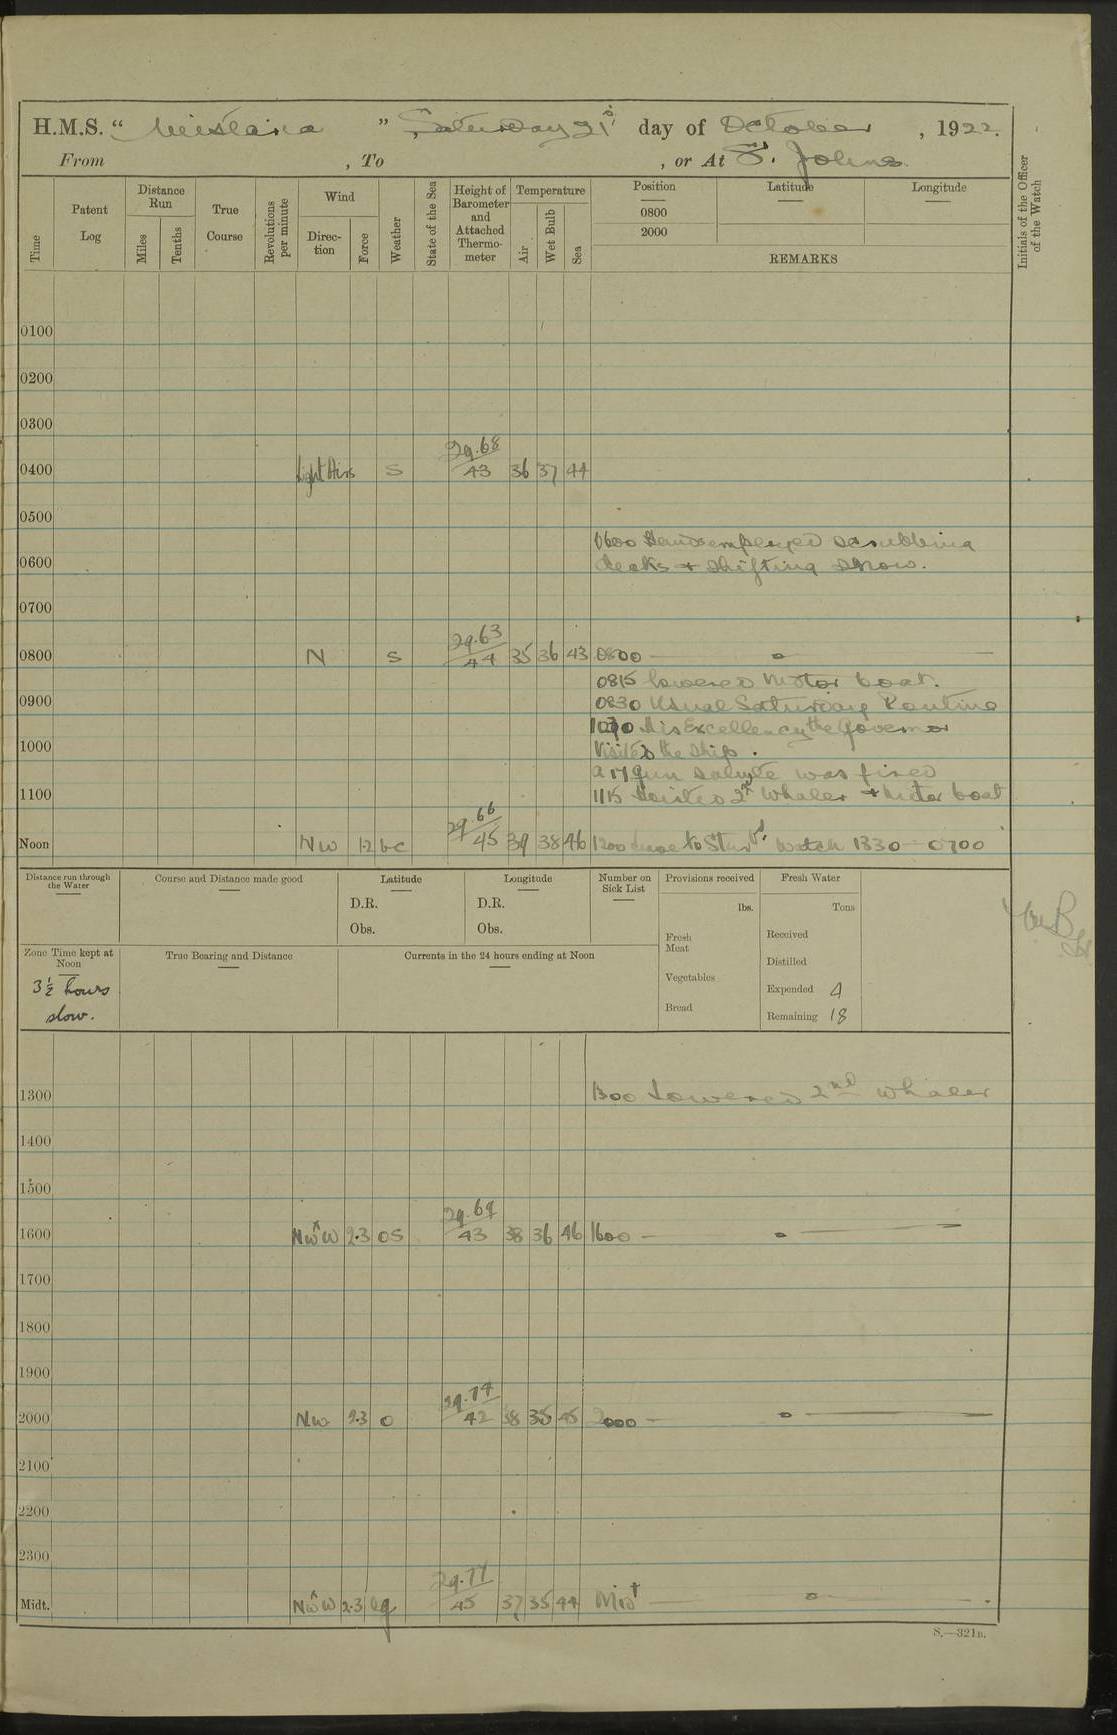 H.M.S. " Wistaria " , Saturday 21st day of October , 1922.
From , To , or At St. Johns.
Time
Patent Log
Distance Run
Miles
Tenths
True Course
Revolutions per minute
Wind
Direction
Force
Weather
State of the Sea
Height of Barometer and Attached Thermometer
Temperature
Air
Wet Bulb
Sea
Position
0800
2000
Latitude
Longitude
REMARKS
Initials of the Officer of the Watch
0100
0200
0300
0400 Light Airs S 29.68/43 36 37 44
0500
0600 Hands employed scrubbing
0600 decks + shifting snow.
0700
0800 N S 29.63/44 35 36 43 0800 — o —
0815 lowered Motor boat.
0900 0830 Usual Saturday Routine
1030 His Excellency the Governor
1000 Visited the ship.
a 17 gun salute was fired
1100 1115 Hoisted 2nd Whaler + Motor boat
Noon NW 1-2 bc 29.66/45 39 38 46 1200 leave to Stbd watch 1330 – 0700
Distance run through the Water
Course and Distance made good
Latitude
D.R.
Obs.
Longitude
D.R.
Obs.
Number on Sick List
Provisions received
lbs.
Fresh Meat
Vegetables
Bread
Fresh Water
Tons
Received
Distilled
Expended 4
Remaining 18
Zone Time kept at Noon
3½ hours
slow.
True Bearing and Distance
Currents in the 24 hours ending at Noon
1300 1300 Lowered 2nd whaler
1400
1500
1600 NW^W 2.3 OS 29.69/43 38 36 46 1600 — o —
1700
1800
1900
2000 NW 2.3 O 29.74/42 38 35 45 2000 — o —
2100
2200
2300
Midt. NW^W 2.3 29.77/45 37 35 44 Midt — o —
S.—321B.